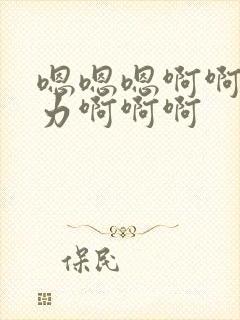 嗯嗯嗯啊啊
力啊啊啊
保民